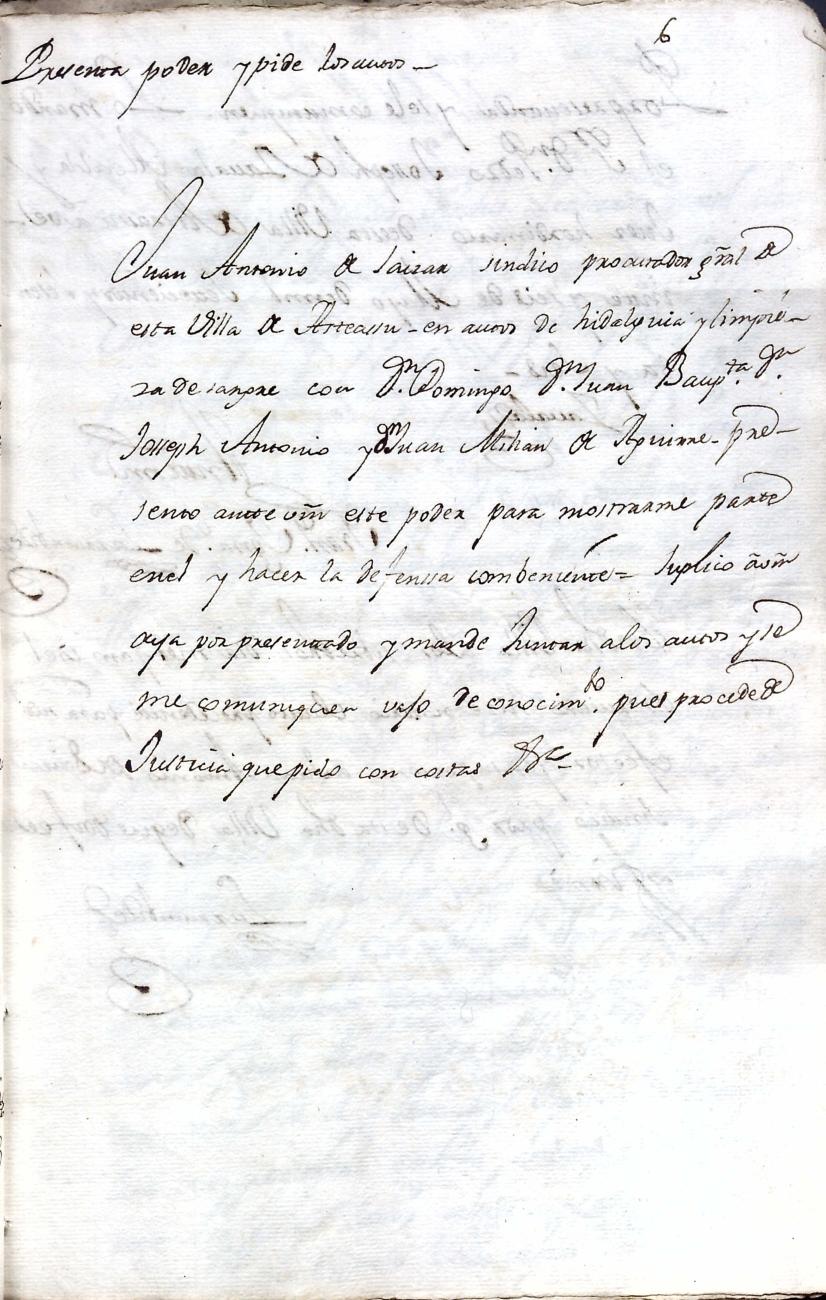 6
Presenta poder y pide los autos –
Juan Antonio de Laizar sindico procurador gral de
esta Villa de Arteassu – en autos de hidalguia y limpie-
za de sangre con Dn. Domingo, Dn. Juan Bapta. Dn.
Joseph Antonio y Dn Juan Milian de Aguirre – pre-
sento antte vm este poder para mostrarme parte
en el y hacer la defenssa combeniente = Suplico a vm
aya por presentado y mande Juntar a los autos y se
me comuniquen vajo de conocimto. pues procede de
Justicia que pido con costas &c –